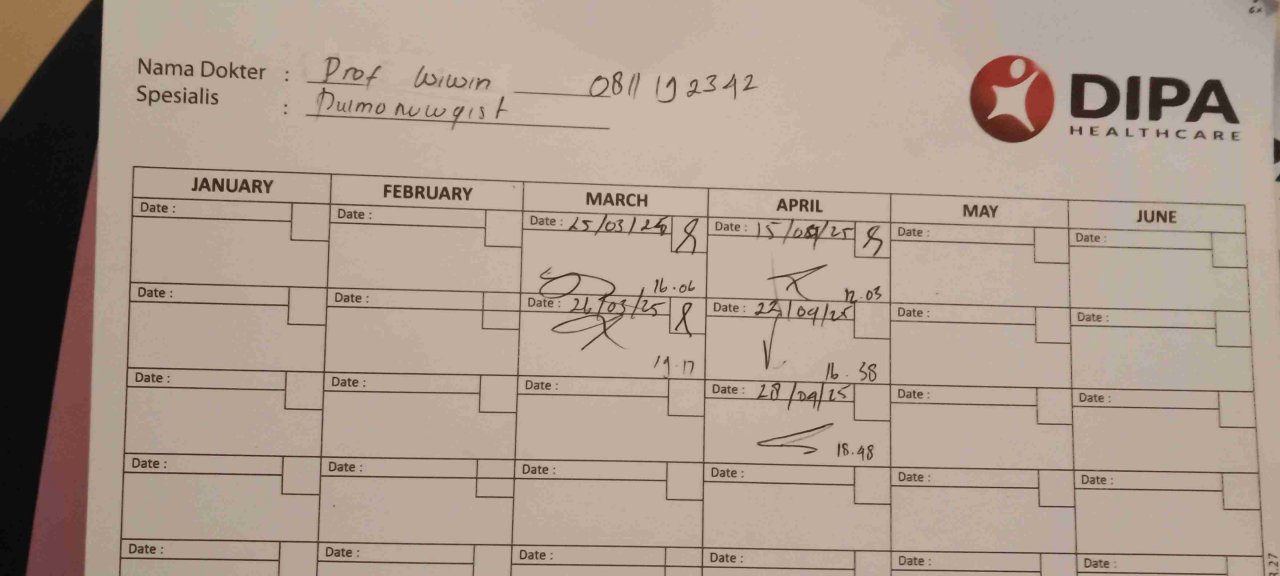 Nama Dokter : Prof Wiwin 0811 192342
Spesialis : Pulmonologist
DIPA
HEALTHCARE
JANUARY FEBRUARY MARCH APRIL MAY JUNE
Date : Date : Date : 25/03/25 Date : 15/04/25 Date : Date :
16.06 12.03
Date : Date : Date : 26/03/25 Date : 22/04/25 Date : Date :
19.17 16.38
Date : Date : Date : Date : 28/04/25 Date : Date :
18.48
Date : Date : Date : Date : Date : Date :
Date : Date : Date : Date : Date : Date :